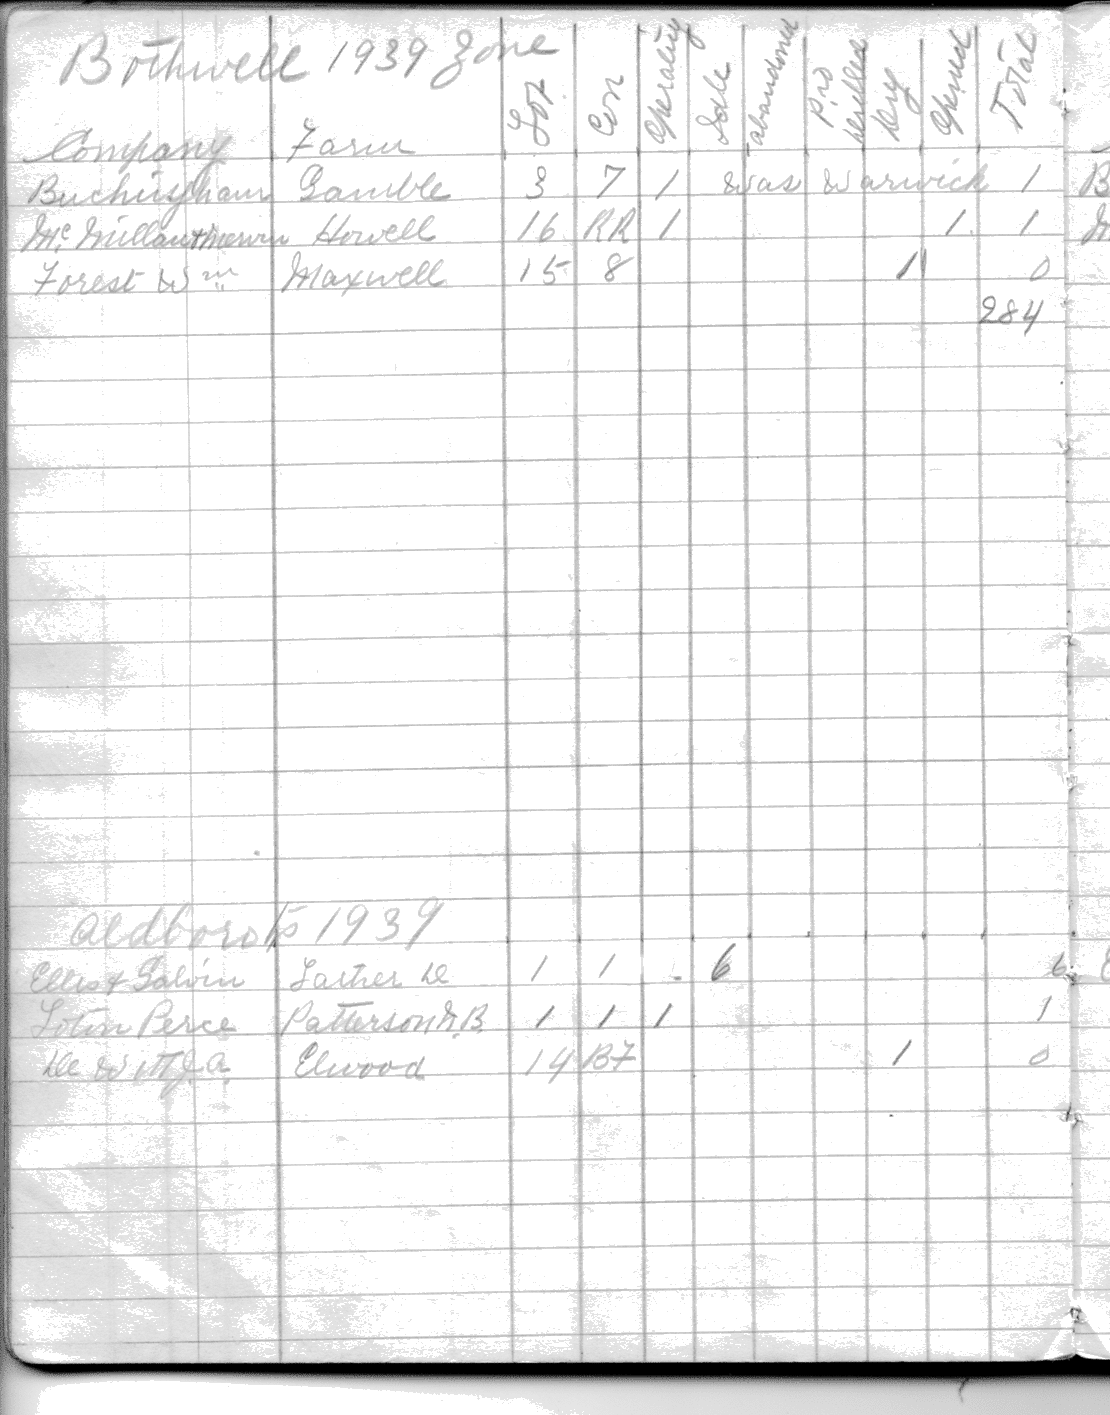 Bothwell 1939 Zone
Company Farm Lot Con Operating Idle abandoned Pro Drilled Dry Opened Total
Buchingham Gamble 3 7 1 Was Warwick 1
Mc Millan Howell 16 RR 1 1 1
Forest Wm Maxwell 15 8 1 0
284
Aldboro 1939
Ellis & Galvin 1 1 6 6
Perce Patterson 1 1 1 1
De Witt J.a. Elwood 14 BF 1 0